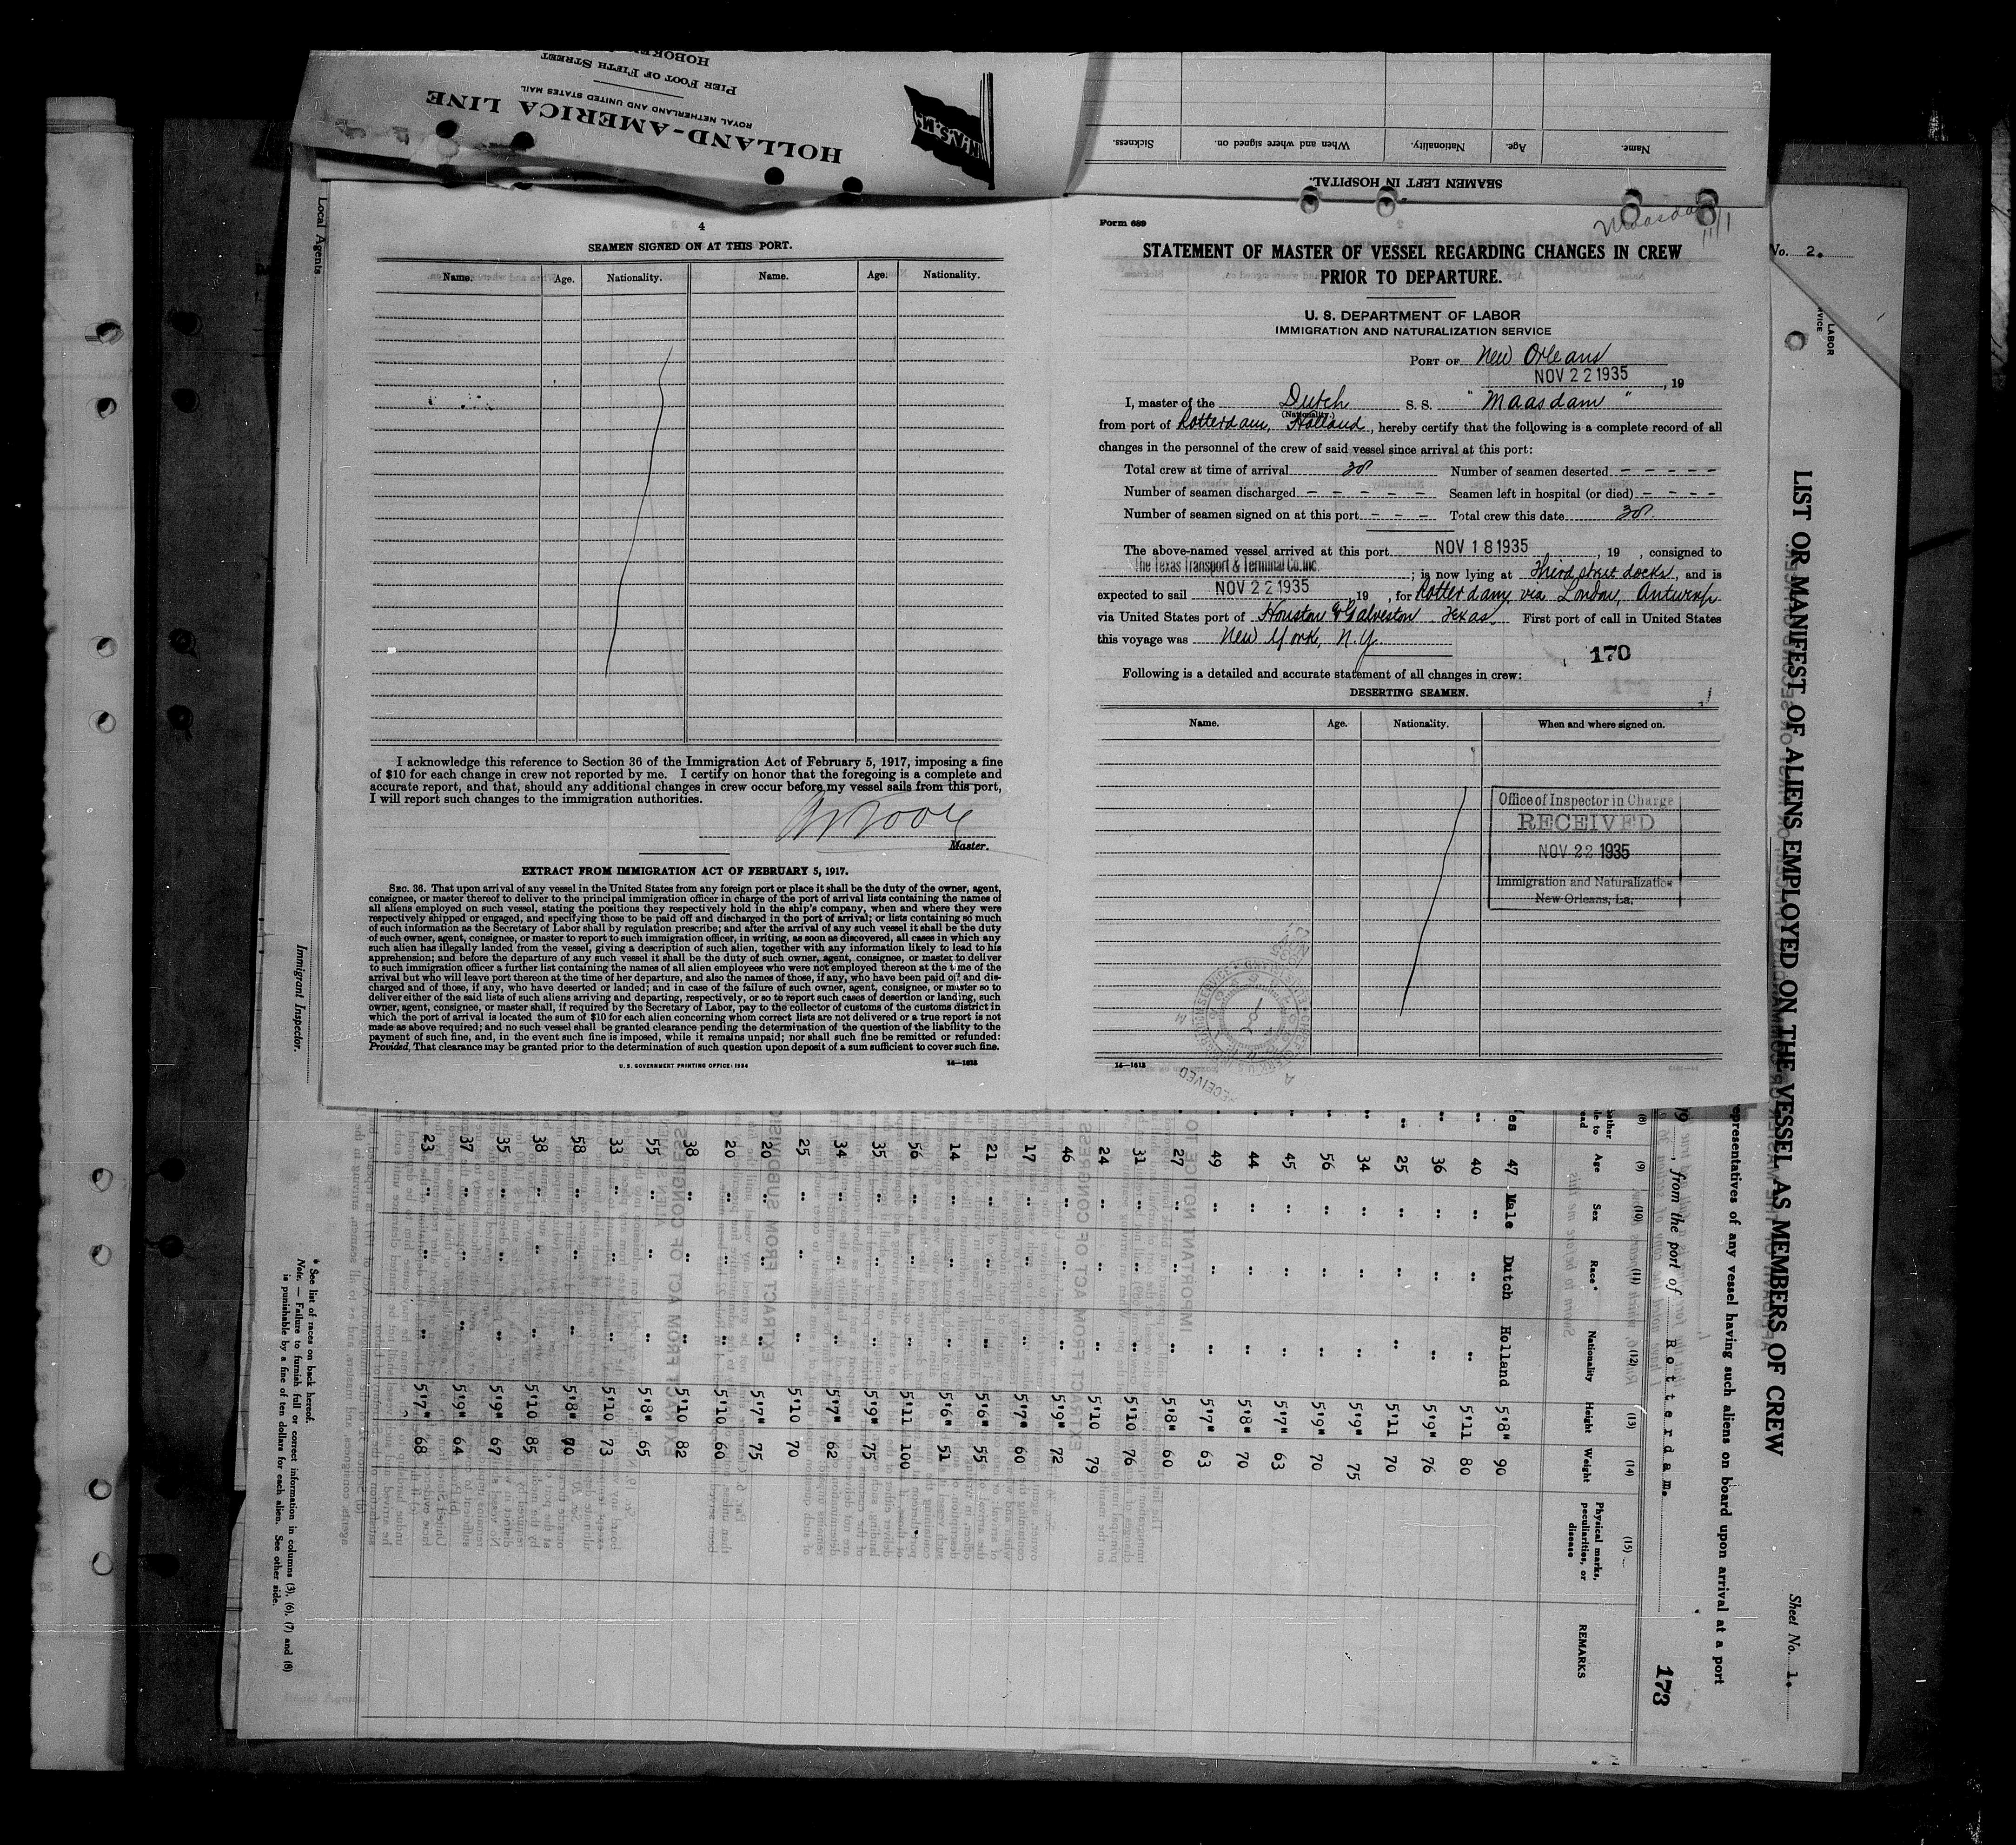 HOLLAND-AMERICA LINE
ROYAL NETHERLAND AND UNITED STATES MAIL
PIER FOOT OF FIFTH STREET
SEAMEN LEFT IN HOSPITAL.
Name. Age. Nationality. When and where signed on. Sickness.
Local Agents
Immigrant Inspector.
4
SEAMEN SIGNED ON AT THIS PORT.
Name. Age. Nationality. Name. Age. Nationality.
I acknowledge this reference to Section 36 of the Immigration Act of February 5, 1917, imposing a fine
of $10 for each change in crew not reported by me. I certify on honor that the foregoing is a complete and
accurate report, and that, should any additional changes in crew occur before my vessel sails from this port,
I will report such changes to the immigration authorities.
Master.
EXTRACT FROM IMMIGRATION ACT OF FEBRUARY 5, 1917.
SEC. 36. That upon arrival of any vessel in the United States from any foreign port or place it shall be the duty of the owner, agent,
consignee, or master thereof to deliver to the principal immigration officer in charge of the port of arrival lists containing the names of
all aliens employed on such vessel, stating the positions they respectively hold in the ship's company, when and where they were
respectively shipped or engaged, and specifying those to be paid off and discharged in the port of arrival; or lists containing so much
of such information as the Secretary of Labor shall by regulation prescribe; and after the arrival of any such vessel it shall be the duty
of such owner, agent, consignee, or master to report to such immigration officer, in writing, as soon as discovered, all cases in which any
such alien has illegally landed from the vessel, giving a description of such alien, together with any information likely to lead to his
apprehension; and before the departure of any such vessel it shall be the duty of such owner, agent, consignee, or master to deliver
to such immigration officer a further list containing the names of all alien employees who were not employed thereon at the time of the
arrival but who will leave port thereon at the time of her departure, and also the names of those, if any, who have been paid off and dis-
charged and of those, if any, who have deserted or landed; and in case of the failure of such owner, agent, consignee, or master so to
deliver either of the said lists of such aliens arriving and departing, respectively, or so to report such cases of desertion or landing, such
owner, agent, consignee, or master shall, if required by the Secretary of Labor, pay to the collector of customs of the customs district in
which the port of arrival is located the sum of $10 for each alien concerning whom correct lists are not delivered or a true report is not
made as above required; and no such vessel shall be granted clearance pending the determination of the question of the liability to the
payment of such fine, and, in the event such fine is imposed, while it remains unpaid; nor shall such fine be remitted or refunded:
Provided, That clearance may be granted prior to the determination of such question upon deposit of a sum sufficient to cover such fine.
U. S. GOVERNMENT PRINTING OFFICE: 1934 14—1613
Form 689
Maasdam
11/1
STATEMENT OF MASTER OF VESSEL REGARDING CHANGES IN CREW
PRIOR TO DEPARTURE.
U. S. DEPARTMENT OF LABOR
IMMIGRATION AND NATURALIZATION SERVICE
PORT OF New Orleans
NOV 22 1935, 19
I, master of the Dutch S. S. "Maasdam"
(Nationality.)
from port of Rotterdam, Holland, hereby certify that the following is a complete record of all
changes in the personnel of the crew of said vessel since arrival at this port:
Total crew at time of arrival Number of seamen deserted - - - - -
Number of seamen discharged - - - - - Seamen left in hospital (or died) - - - -
Number of seamen signed on at this port - - - Total crew this date
The above-named vessel arrived at this port NOV 18 1935, 19 , consigned to
The Texas Transport & Terminal Co. Inc. ; is now lying at Third street docks, and is
expected to sail NOV 22 1935, 19 , for Rotterdam via London, Antwerp
via United States port of Houston & Galveston Texas. First port of call in United States
this voyage was New York, N.Y.
170
Following is a detailed and accurate statement of all changes in crew:
DESERTING SEAMEN.
Name. Age. Nationality. When and where signed on.
Office of Inspector in Charge
RECEIVED
NOV 22 1935
Immigration and Naturalization
New Orleans, La.
RECEIVED
14—1613
No. 2.
LABOR
LIST OR MANIFEST OF ALIENS EMPLOYED ON THE VESSEL AS MEMBERS OF CREW
Sheet No. 1.
representatives of any vessel having such aliens on board upon arrival at a port
19 , from the port of Rotterdam.
173
(8) (9) (10) (11) (12) (13) (14) (15)
Age Sex Race* Nationality Height Weight Physical marks, peculiarities, or disease REMARKS
47 Male Dutch Holland 5'8" 90
40 " " " 5'11 80
36 " " " 5'9" 76
25 " " " 5'11 70
34 " " " 5'9" 75
56 " " " 5'9" 70
45 " " " 5'7" 63
44 " " " 5'8" 70
49 " " " 5'7" 63
27 " " " 5'8" 60
31 " " " 5'10 76
24 " " " 5'10 79
46 " " " 5'9" 72
17 " " " 5'7" 60
21 " " " 5'6" 55
14 " " " 5'6" 51
56 " " " 5'11 100
35 " " " 5'9" 75
34 " " " 5'7" 62
25 " " " 5'10 70
20 " " " 5'7" 75
20 " " " 5'10 60
38 " " " 5'10 82
55 " " " 5'8" 65
33 " " " 5'10 73
58 " " " 5'8" 70
38 " " " 5'10 85
35 " " " 5'9" 67
37 " " " 5'9" 64
23 " " " 5'7" 68
* See list of races on back hereof.
Note. — Failure to furnish full or correct information in columns (3), (6), (7) and (8)
is punishable by a fine of ten dollars for each alien. See other side.